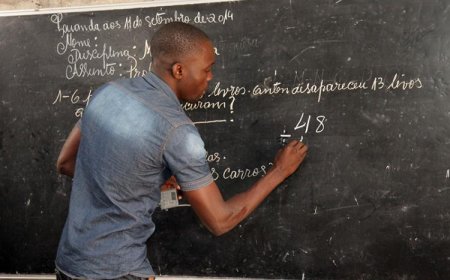 Quanda aos 11 de Setembro de 2014
Nome:
Disciplina: M
Assunto: Pro
1-6 livros. desapareceu 13 livros
curam?
48
÷
as.
s carros?